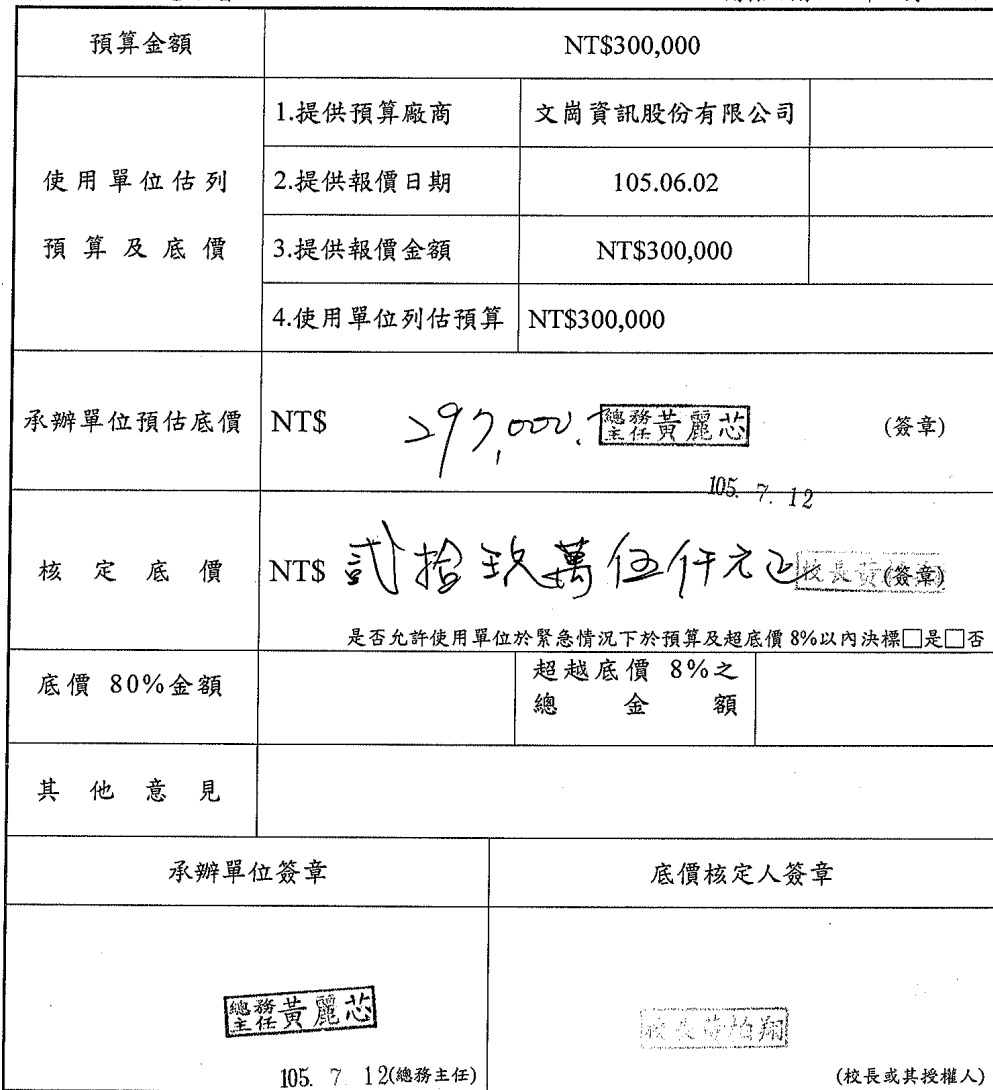 預算金額 NT$300,000
使用單位估列
預算及底價
1.提供預算廠商 文崗資訊股份有限公司
2.提供報價日期 105.06.02
3.提供報價金額 NT$300,000
4.使用單位列估預算 NT$300,000
承辦單位預估底價 NT$ 297,000. 總務主任 黃麗芯 (簽章)
105. 7. 12
核定底價 NT$ 貳拾玖萬伍仟元正 校長黃 (簽章)
是否允許使用單位於緊急情況下於預算及超底價 8%以內決標□是□否
底價 80%金額
超越底價 8%之
總金額
其他意見
承辦單位簽章 底價核定人簽章
總務主任 黃麗芯
校長黃柏翔
105. 7. 12(總務主任) (校長或其授權人)